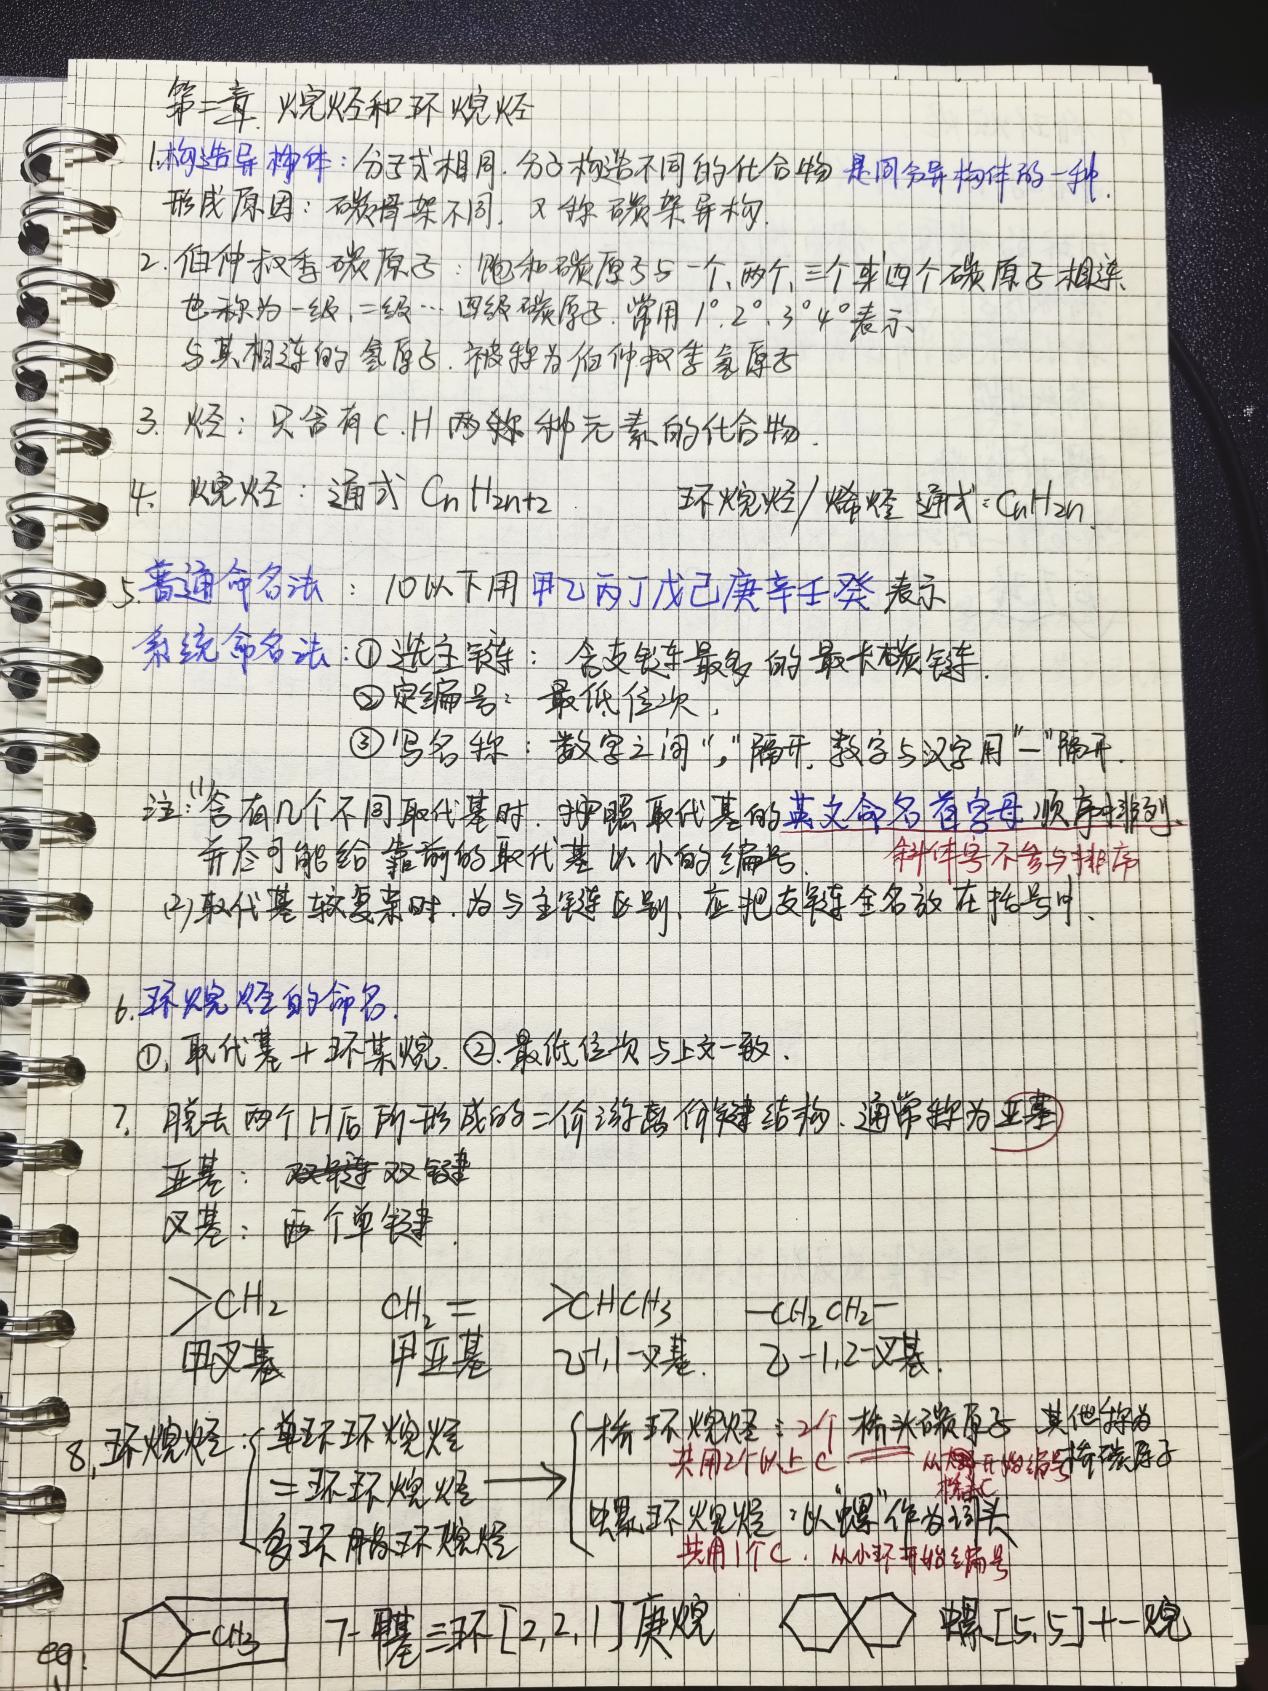 第二章 烷烃和环烷烃
1.构造异构体：分子式相同.分子构造不同的化合物 是同分异构体的一种.
形成原因：碳骨架不同. 又称碳架异构.
2.伯仲叔季碳原子：饱和碳原子与一个、两个、三个或四个碳原子相连
也称为一级、二级…四级碳原子.常用1°.2°.3°4°表示
与其相连的氢原子.被称为伯仲叔季氢原子
3. 烃：只含有C.H两种元素的化合物.
4. 烷烃：通式CnH2n+2 环烷烃/烯烃通式：CnH2n.
5.普通命名法：10以下用甲乙丙丁戊己庚辛壬癸表示
系统命名法：①选主链：含支链最多的最长碳链.
②定编号：最低位次.
③写名称：数字之间","隔开.数字与汉字用"—"隔开.
注：(1)含有几个不同取代基时.按照取代基的英文命名首字母顺序排列.
并尽可能给靠前的取代基以小的编号. 斜体字不参与排序
(2)取代基较复杂时.为与主链区别、应把支链全名放在括号中.
6.环烷烃的命名.
①.取代基+环某烷. ②.最低位次与上文一致.
7. 脱去两个H后所形成的二价游离价键结构.通常称为亚基
亚基：双键
叉基：两个单键.
>CH2 CH2= >CHCH3 —CH2CH2—
甲叉基 甲亚基 乙-1,1-叉基. 乙-1,2-叉基.
8.环烷烃： 单环环烷烃 桥环烷烃：2个桥头碳原子 其他称为
共用2个以上C 从 开始编号 桥碳原子
桥头C
二环环烷烃
多环脂环烷烃 螺环烷烃：以"螺"作为词头
共用1个C. 从小环开始编号
eg: CH3 7-甲基二环[2,2,1]庚烷 螺[5,5]十一烷